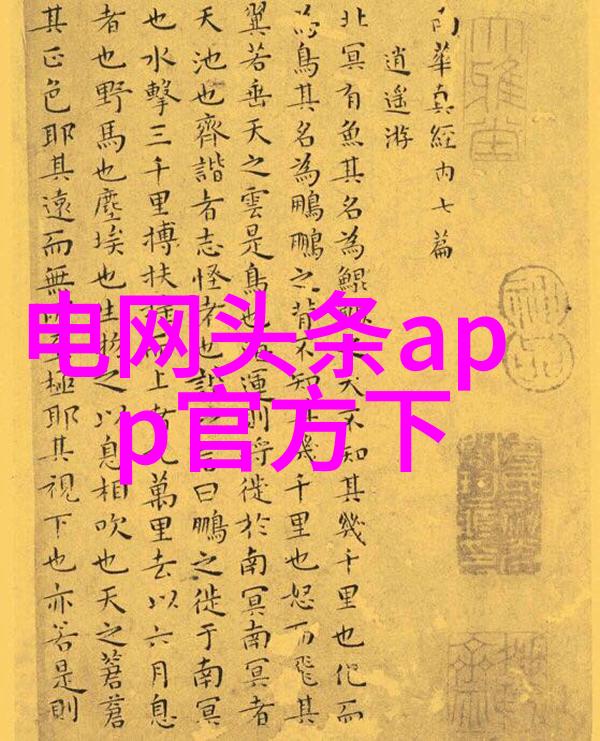 电网头条ap
p官方下
南華真經內七篇
逍遙游
北冥有魚其名為鯤鯤之大不知其幾千里也化而
為鳥其名為鵬鵬之背不知其幾千里也怒而飛其
翼若垂天之雲是鳥也海運則將徙於南冥南冥者
天池也齊諧者志怪者也諧之言曰鵬之徙于南冥
也水擊三千里摶扶搖而上者九萬里去以六月息
者也野馬也塵埃也生物之以息相吹也天之蒼蒼
其正色耶其遠而無所至極耶其視下也亦若是則
大雅堂
神品